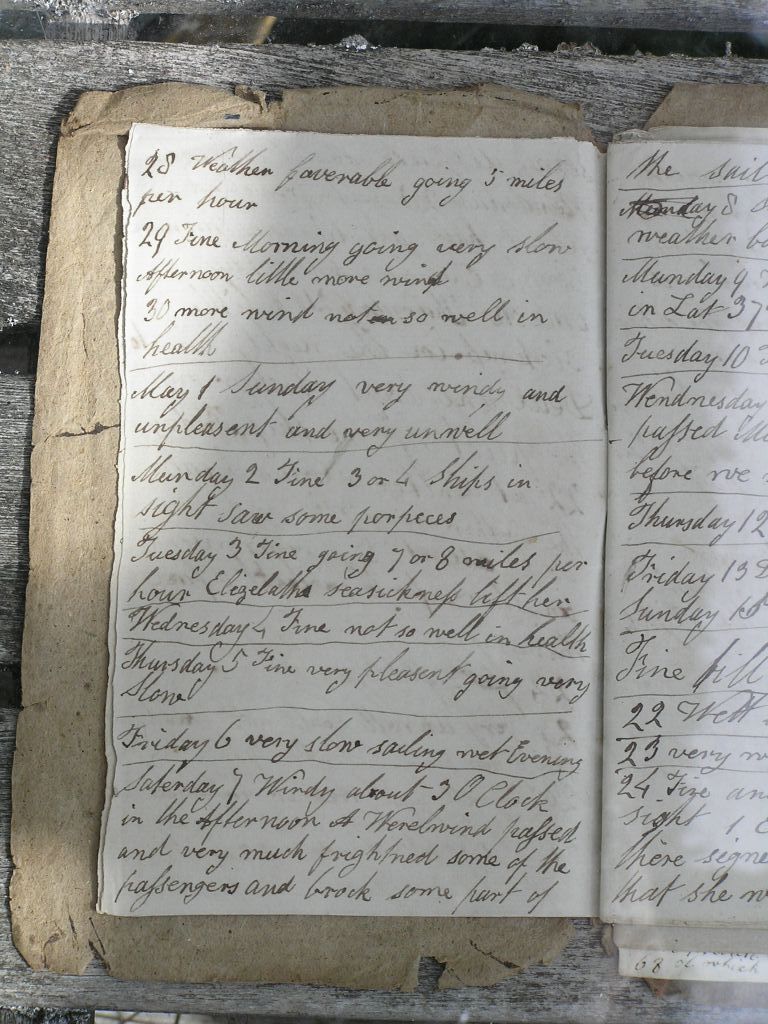 28 Weather faverable going 5 miles
per hour
29 Fine Morning going very slow
Afternoon little more wind
30 more wind not so well in
health
May 1 Sunday very windy and
unpleasent and very unwell
Munday 2 Fine 3 or 4 Ships in
sight saw some porpeces
Tuesday 3 Fine going 7 or 8 miles per
hour Elizelath seasickness lift her
Wednesday 4 Fine not so well in health
Thursday 5 Fine very pleasent going very
Slow
Friday 6 very slow sailing wet Evening
Saterday 7 Windy about 3 O Clock
in the Afternoon A Werelwind passed
and very much frightned some of the
passengers and brock some part of
the sail
Munday 8
weather
Munday 9
in Lat 37
Tuesday 10
Wendnesday
passed
before we
Thursday 12
Friday 13
Sunday 15
Fine till
22 Wett
23 very
24 Fine an
sight 1
there signe
that she
68 of which